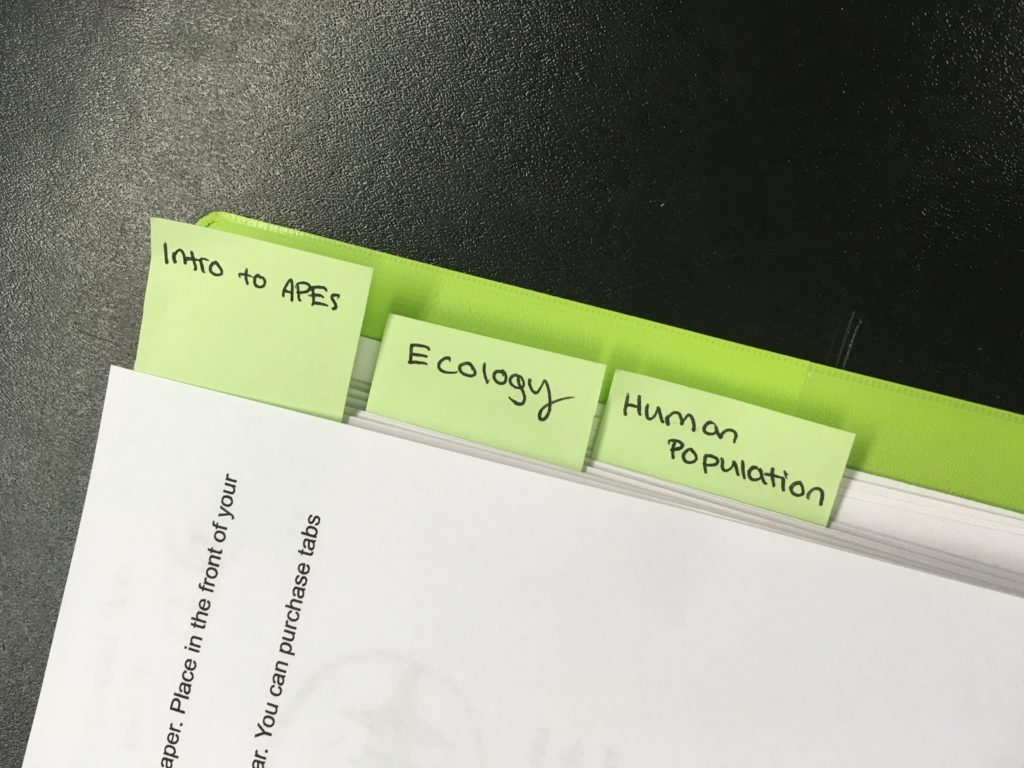 Intro to APEs
Ecology
Human
Population
aper. Place in the front of your
ar. You can purchase tabs